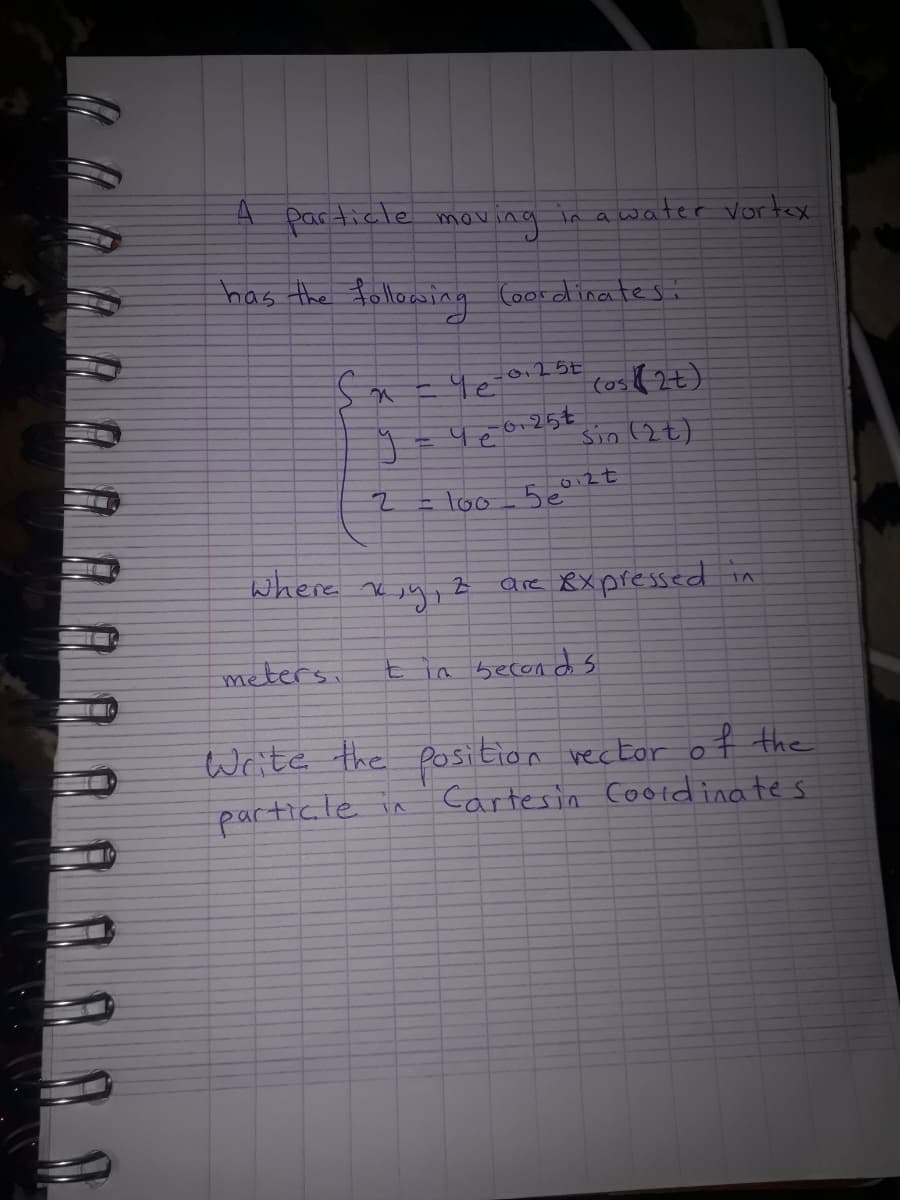 A particle moving in a water vortex
has the following Coordinates:
x = 4e^-0.25t cos(2t)
y = 4e^-0.25t sin(2t)
z = 100 - 5e^0.2t
where x, y, z are expressed in
meters. t in seconds
Write the position vector of the
particle in Cartesin Coordinates